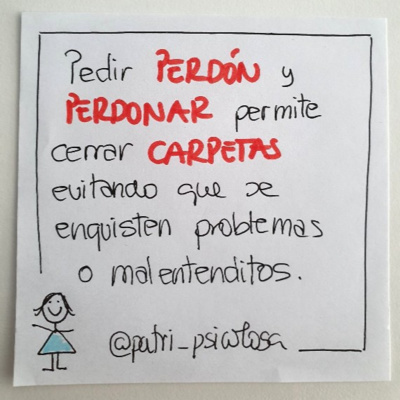 Pedir PERDÓN y
PERDONAR permite
cerrar CARPETAS
evitando que se
enquisten problemas
o malentenditos.
@patri_psicolosa